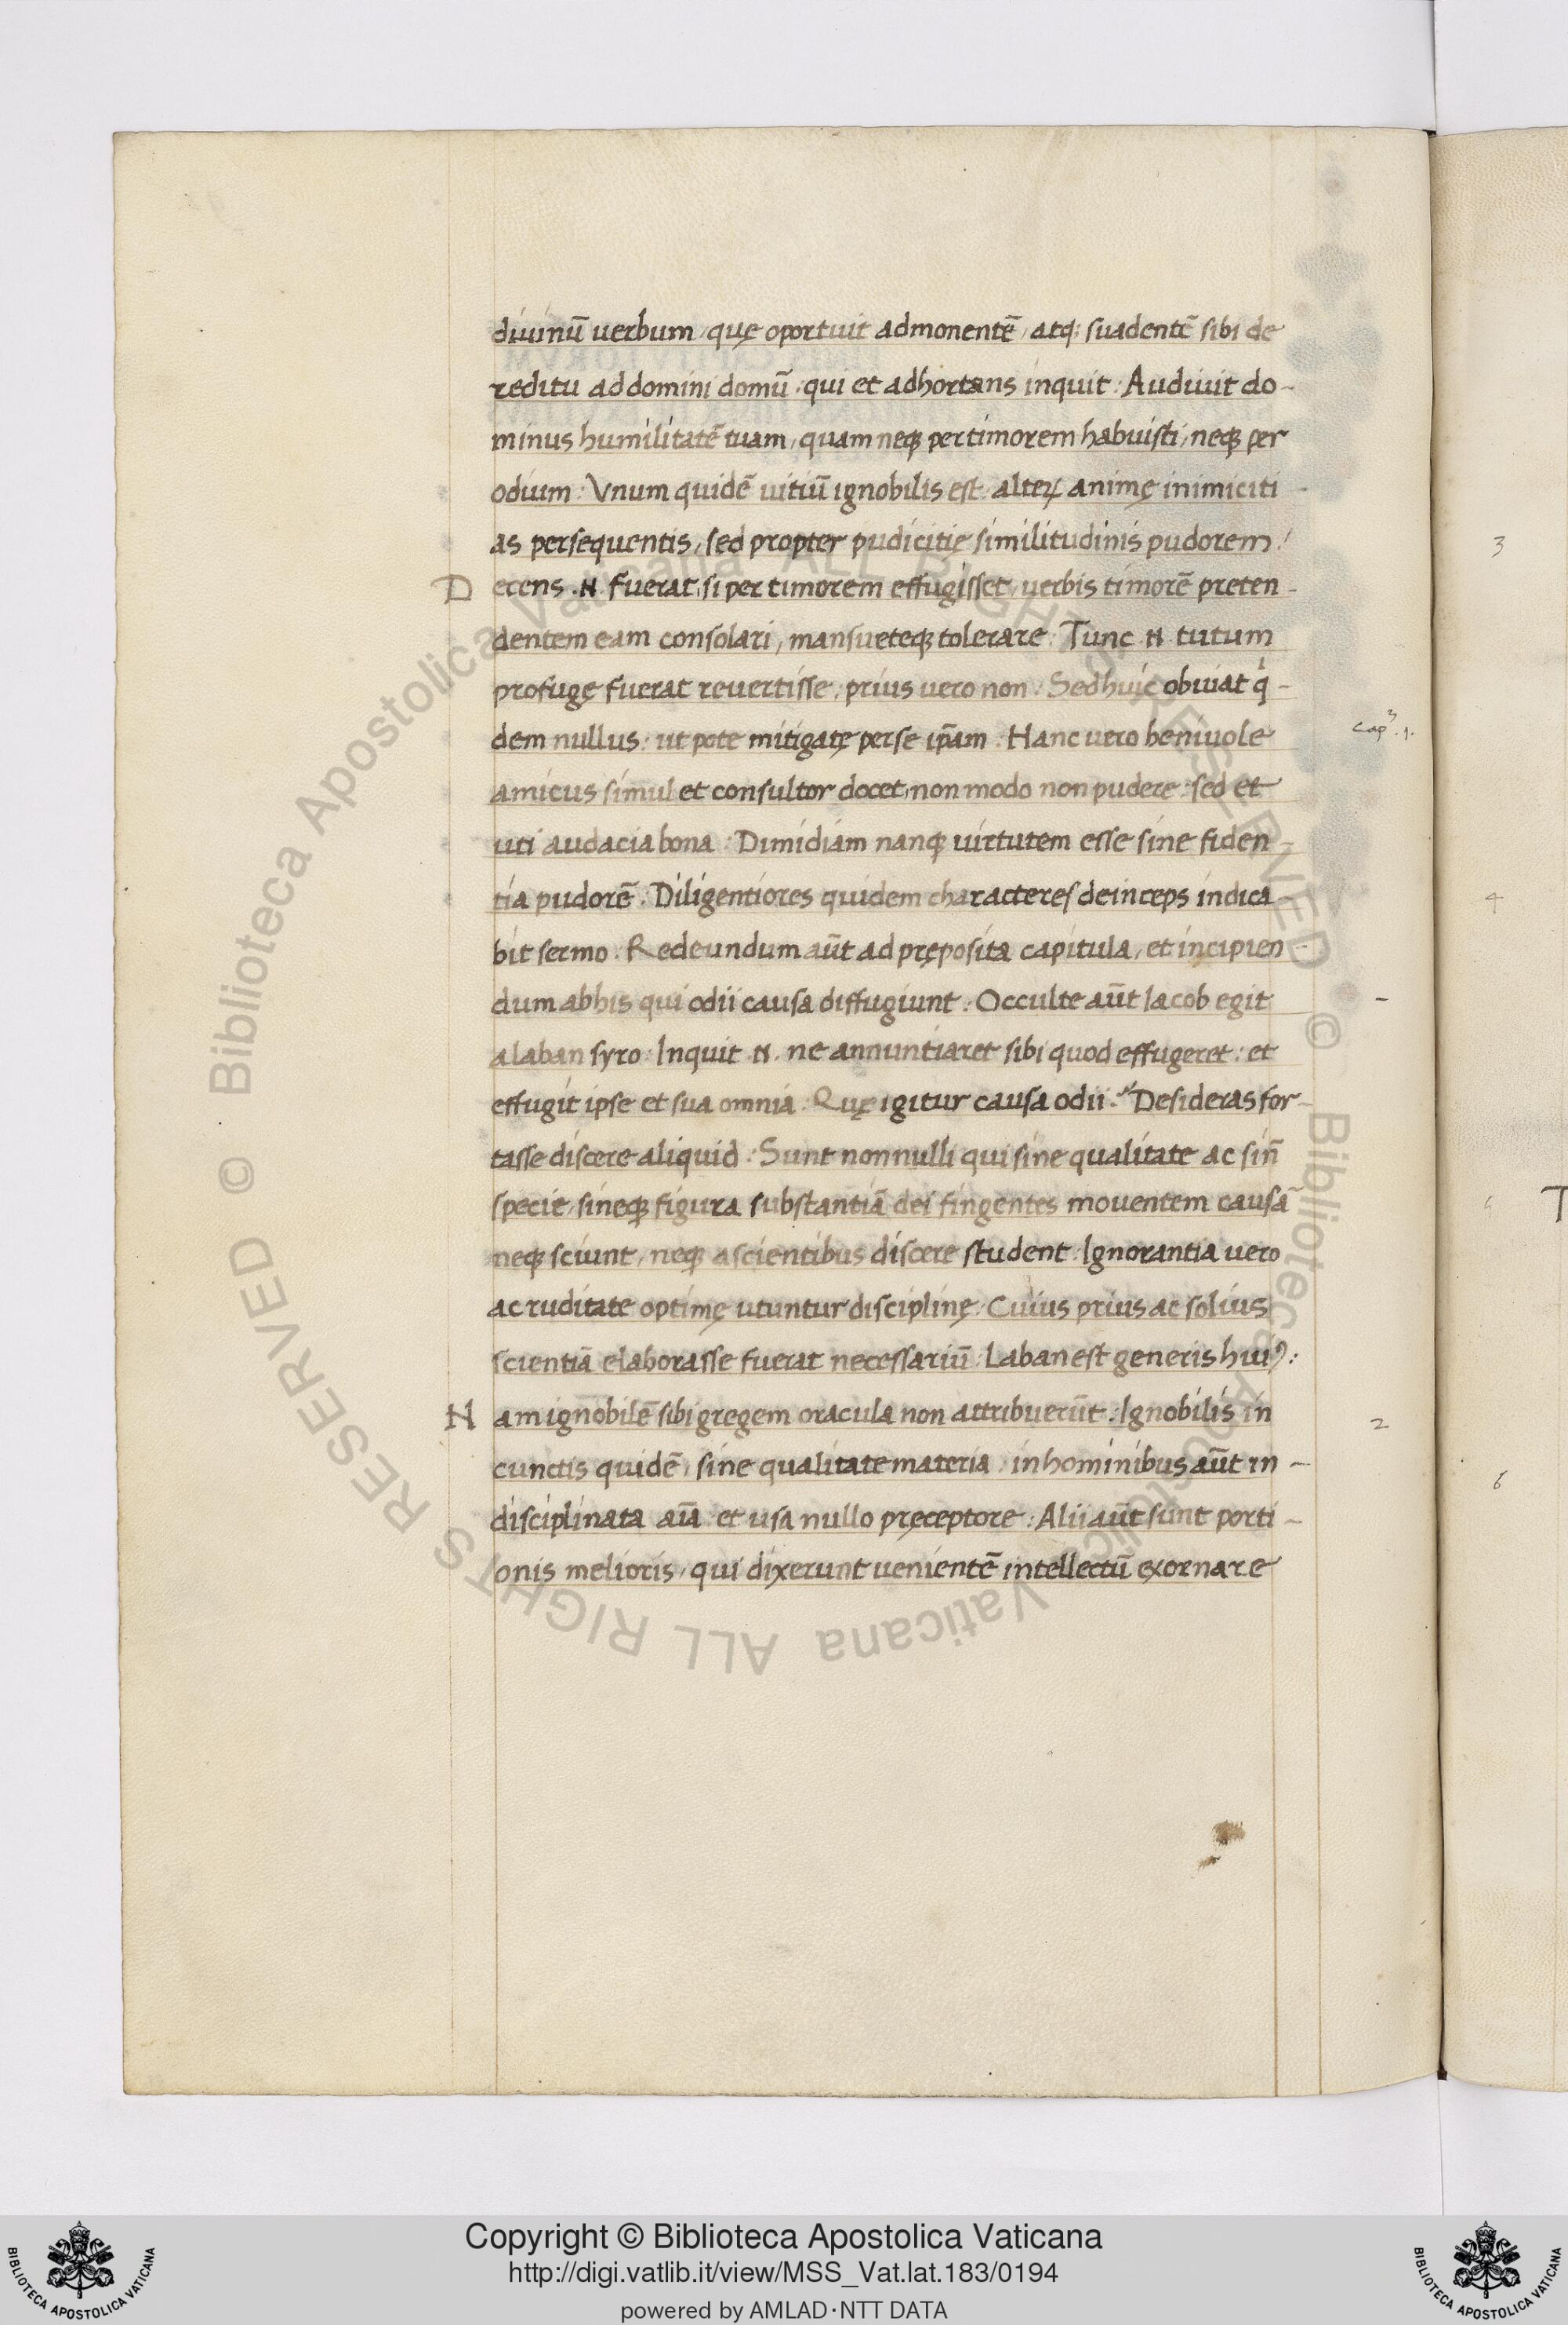 diuinū uerbum, quę oportuit admonentē, atq; suadentē sibi de
reditu ad domini domū: qui et adhortans inquit: Audiuit do-
minus humilitatē tuam, quam neq; per timorem habuisti, neq; per
odium: Vnum quidē uitiū ignobilis est: alterꝝ animę inimiciti-
as persequentis, sed propter pudicitię similitudinis pudorem:
Decens .N. fuerat, si per timorem effugisset, uerbis timorē preten-
dentem eam consolari, mansueteq; tolerare: Tunc .N. tutum
profugę fuerat reuertisse, prius uero non: Sed huic obuiat qͥ-
dem nullus: ut pote mitigatę per se ip̄am: Hanc uero beniuole
amicus simul et consultor docet, non modo non pudere: sed et
uti audacia bona: Dimidiam nanq; uirtutem esse sine fiden-
tia pudorē: Diligentiores quidem characteres deinceps indica-
bit sermo: Redeundum aūt ad pręposita capitula, et incipien-
dum ab his qui odii causa diffugiunt: Occulte aūt Iacob egit
a Laban syro: Inquit .N. ne annuntiaret sibi quod effugeret: et
effugit ipse et sua omnia: Quę igitur causa odii? Desideras for-
tasse discere aliquid: Sunt nonnulli qui sine qualitate ac sin̄
specie, sineq; figura substantiā dei fingentes mouentem causā
neq; sciunt, neq; a scientibus discere student: Ignorantia uero
ac ruditate optimę utuntur disciplinę: Cuius prius ac solius
scientiā elaborasse fuerat necessariū: Laban est generis huiꝰ:
Nam ignobilē sibi gregem oracula non attribuerūt: Ignobilis in
cunctis quidē, sine qualitate materia: in hominibus aūt in-
disciplinata aīa: et usa nullo pręceptore: Alii aūt sunt porti-
onis melioris, qui dixerunt uenientē intellectū exornare
cap 3 . 1.
-
2
3
4
6
T
© Biblioteca Apostolica Vaticana ALL RIGHTS RESERVED © Biblioteca Apostolica Vaticana ALL RIGHTS RESERVED
Copyright © Biblioteca Apostolica Vaticana
http://digi.vatlib.it/view/MSS_Vat.lat.183/0194
powered by AMLAD·NTT DATA
BIBLIOTECA APOSTOLICA VATICANA
BIBLIOTECA APOSTOLICA VATICANA